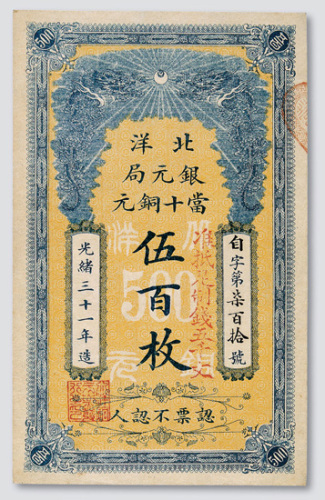 500
500
北洋
銀元局
當十銅元
伍百枚
自字第柒百拾號
光緒三十一年造
500
認票不認人
500
500